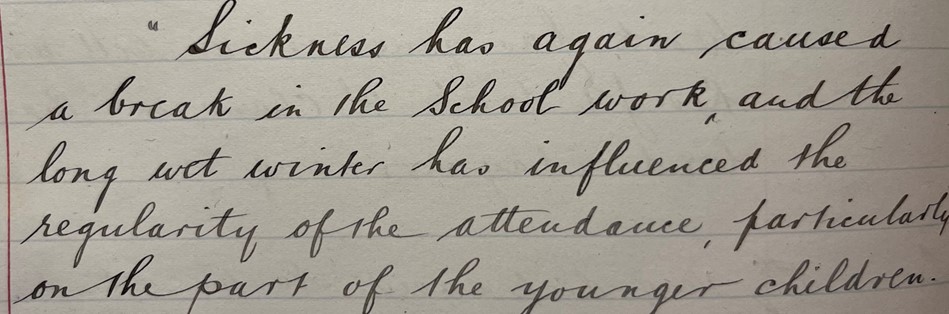 " Sickness has again caused
a break in the School work, and the
long wet winter has influenced the
regularity of the attendance, particularly
on the part of the younger children.